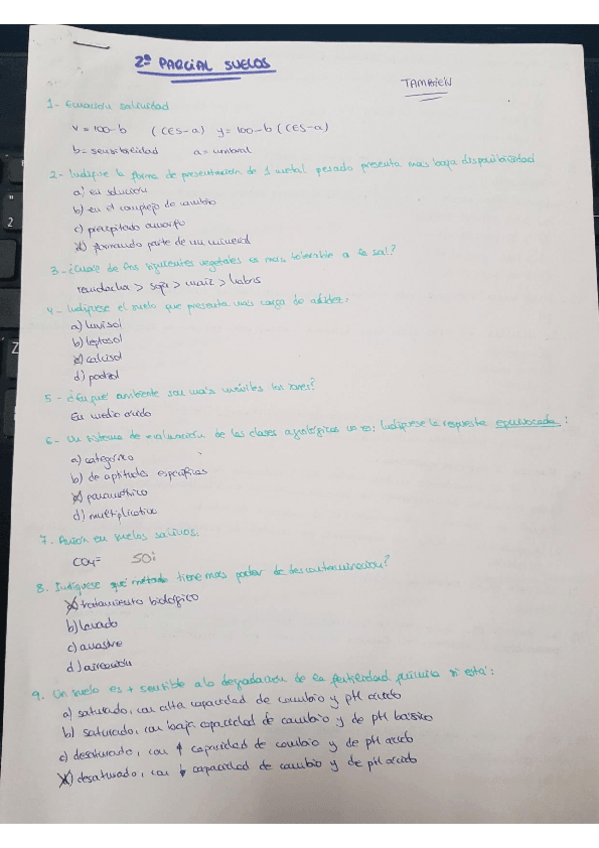 2º PARCIAL SUELOS
TAMBIEN
1- Ecuación salinidad
y = 100-b (CES-a) y = 100-b (CES-a)
b = sensibilidad a = umbral
2- Indique la forma de presentación de 1 metal pesado presenta mas baja disponibilidad
a) en solución
b) en el complejo de cambio
c) precipitado amorfo
d) formando parte de un mineral
3- ¿Cuál de los siguientes vegetales es más tolerable a la sal?
remolacha > soja > maíz > habas
4- Indíquese el suelo que presenta mas carga de acidez:
a) luvisol
b) leptosol
c) calcisol
d) podzol
5- ¿En qué ambiente son más móviles los iones?
En medio ácido
6- Un sistema de evaluación de las clases agrológicas es: Indíquese la respuesta equivocada:
a) categórico
b) de aptitudes específicas
c) paramétrico
d) multiplicativo
7. Anión en suelos salinos.
CO4=
8. Indíquese qué método tiene mas poder de descontaminación?
a) tratamiento biológico
b) lavado
c) arrastre
d)
9. Un suelo es + sensible a la degradación de la fertilidad química si está:
a) saturado, con alta capacidad de cambio y pH ácido
b) saturado, con baja capacidad de cambio y de pH básico
c) desaturado, con ↑ capacidad de cambio y de pH ácido
d) desaturado, con ↓ capacidad de cambio y de pH ácido